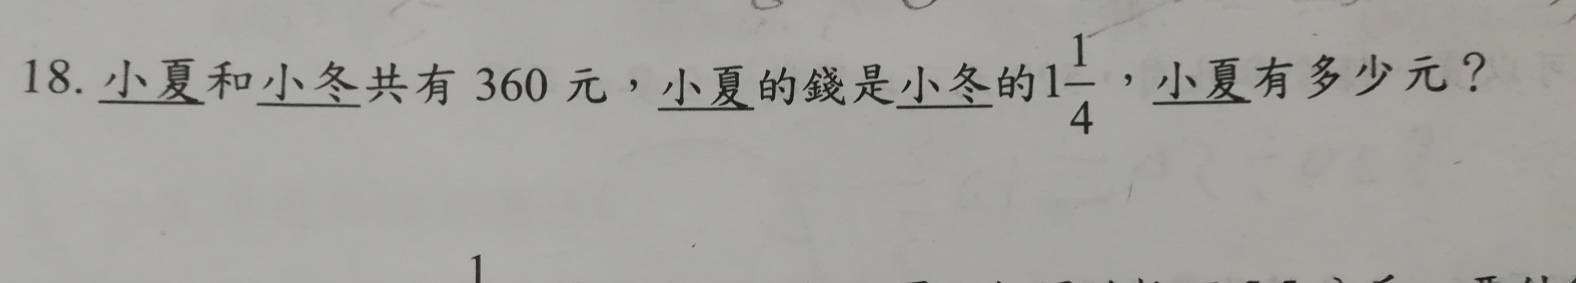 18. 小夏和小冬共有 360 元，小夏的錢是小冬的1 1/4，小夏有多少元？
1